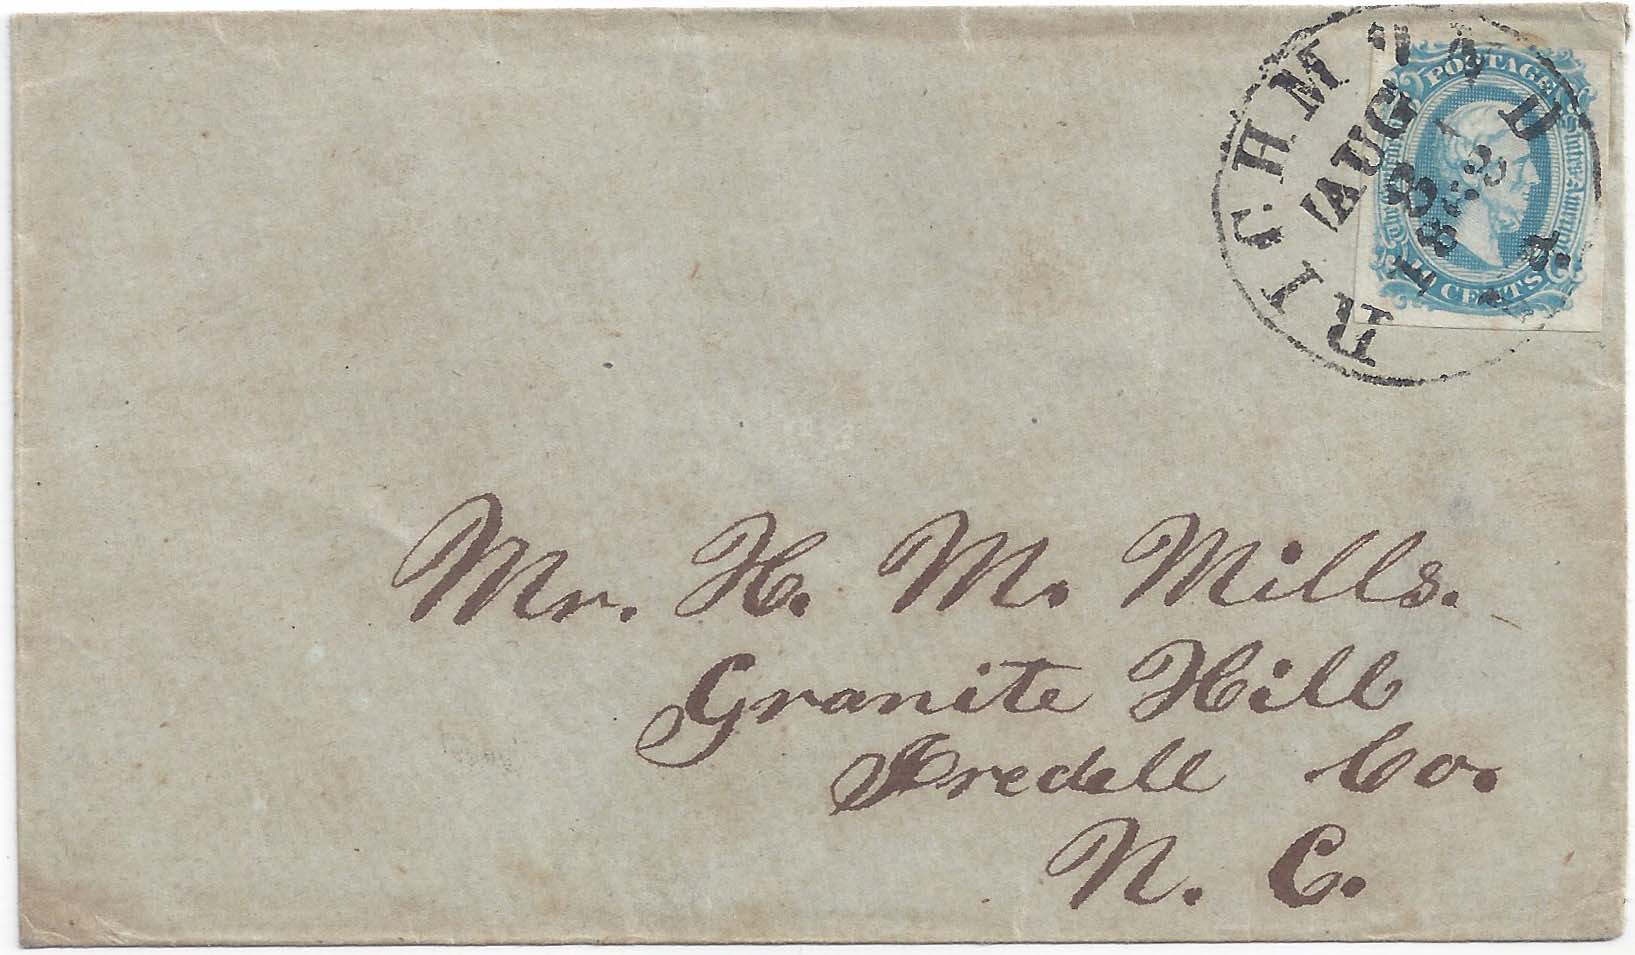 RICHMOND
AUG
8
1863
POSTAGE
CENTS
Mr. H. M. Mills.
Granite Hill
Iredell Co.
N. C.